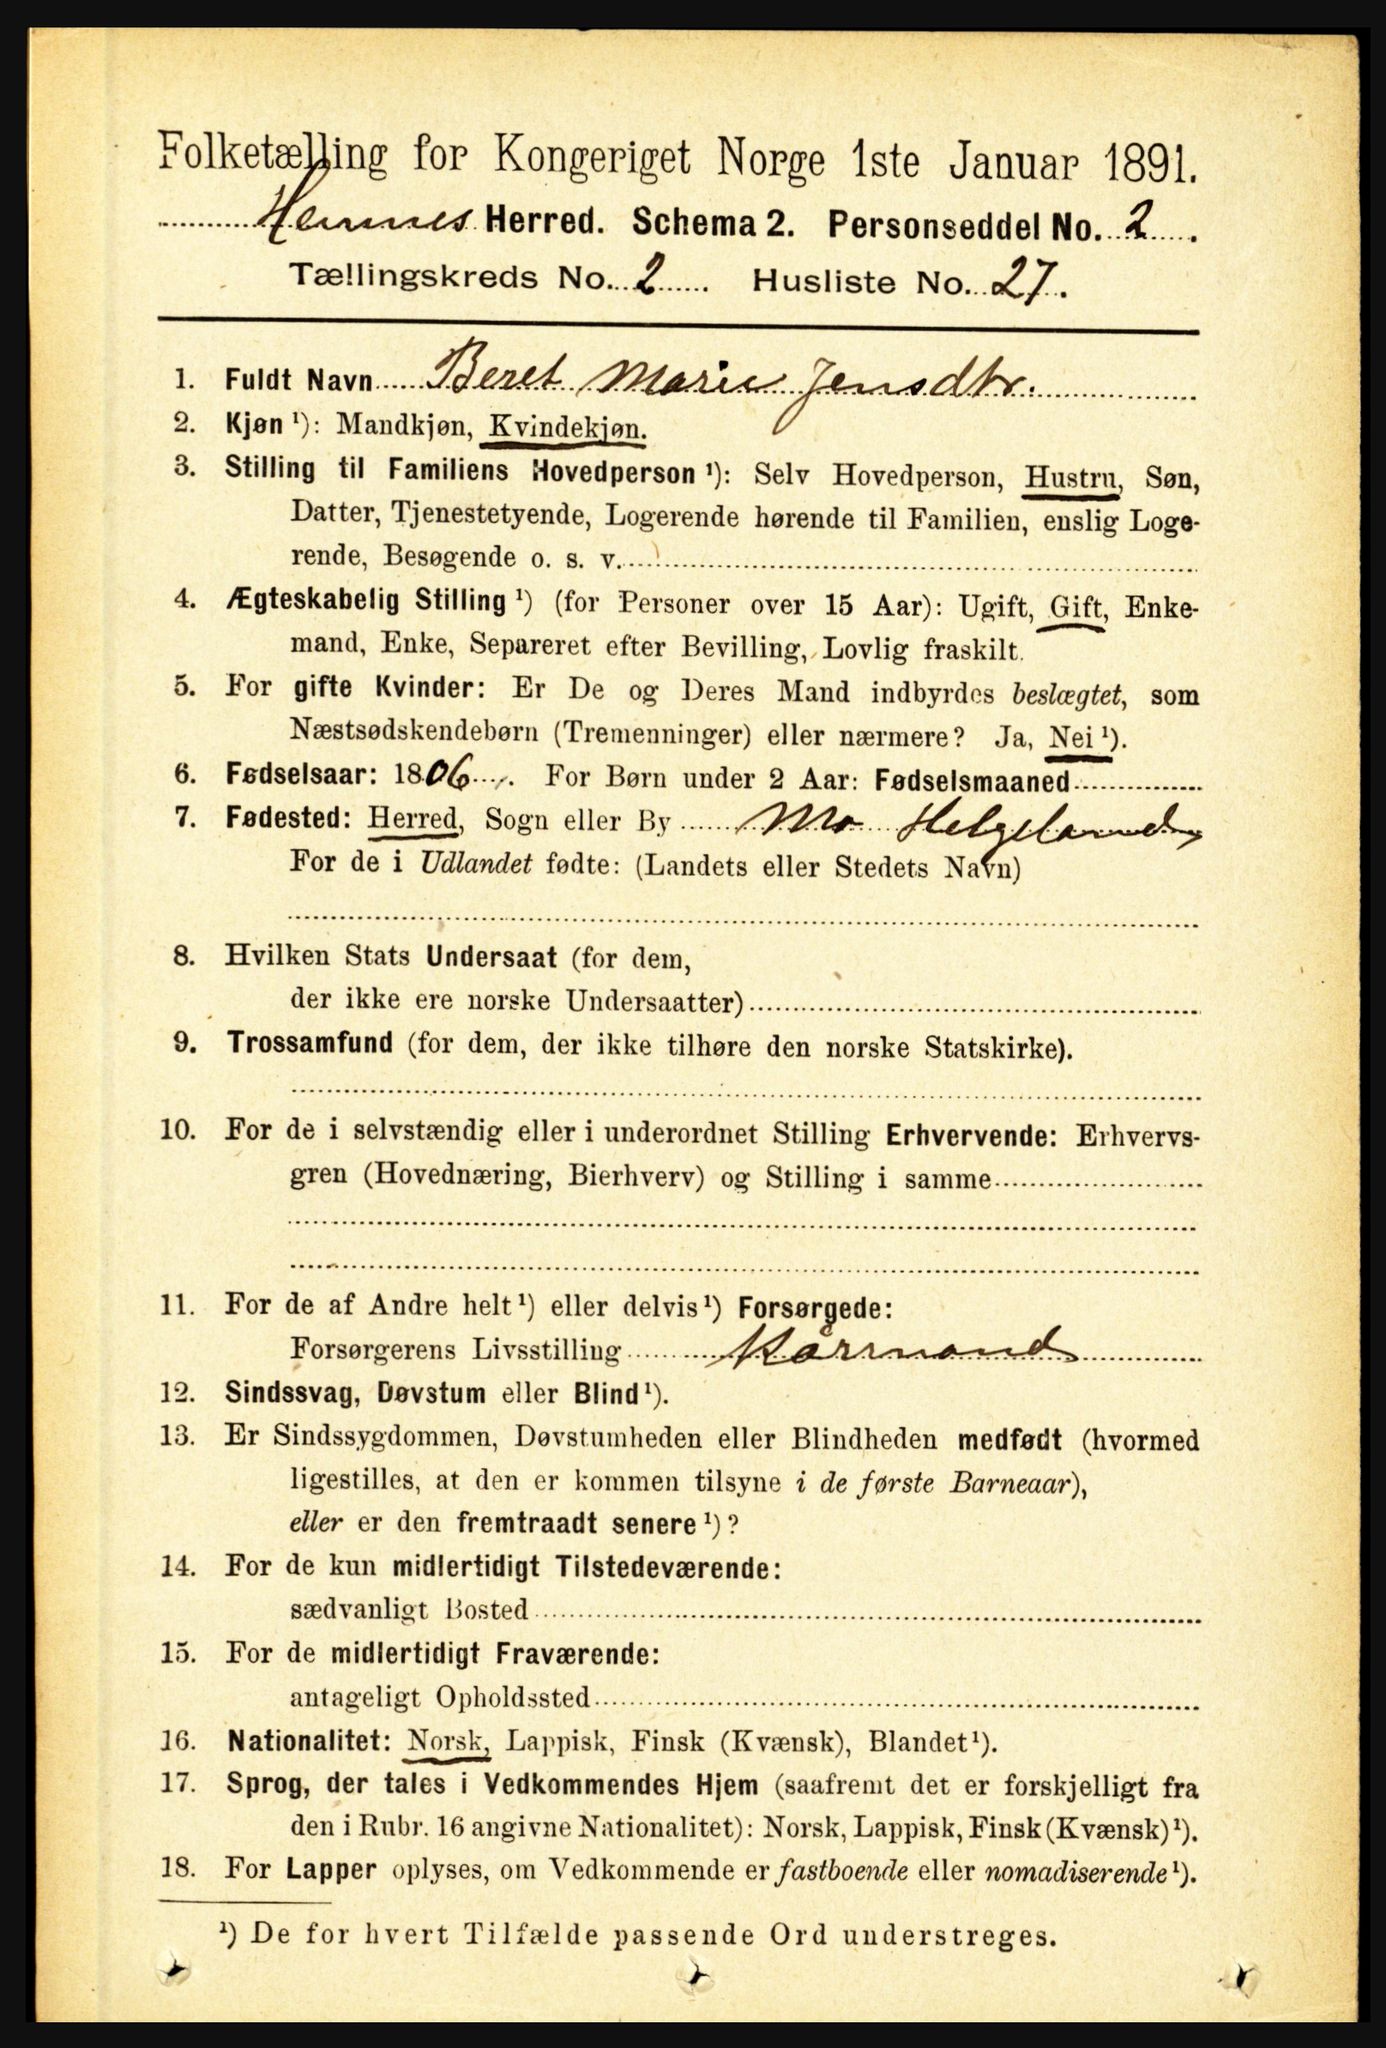 Folketælling for Kongeriget Norge 1ste Januar 1891.
Hemnes Herred. Schema 2. Personseddel No. 2.
Tællingskreds No. 2. Husliste No. 27.
1. Fuldt Navn Beret Marie Jensdtr.
2. Kjøn ¹): Mandkjøn, Kvindekjøn.
3. Stilling til Familiens Hovedperson ¹): Selv Hovedperson, Hustru, Søn,
Datter, Tjenestetyende, Logerende hørende til Familien, enslig Loge-
rende, Besøgende o. s. v.
4. Ægteskabelig Stilling ¹) (for Personer over 15 Aar): Ugift, Gift, Enke-
mand, Enke, Separeret efter Bevilling, Lovlig fraskilt.
5. For gifte Kvinder: Er De og Deres Mand indbyrdes beslægtet, som
Næstsødskendebørn (Tremenninger) eller nærmere? Ja, Nei ¹).
6. Fødselsaar: 1806. For Børn under 2 Aar: Fødselsmaaned
7. Fødested: Herred, Sogn eller By Mo Helgeland
For de i Udlandet fødte: (Landets eller Stedets Navn)
8. Hvilken Stats Undersaat (for dem,
der ikke ere norske Undersaatter)
9. Trossamfund (for dem, der ikke tilhøre den norske Statskirke).
10. For de i selvstændig eller i underordnet Stilling Erhvervende: Erhvervs-
gren (Hovednæring, Bierhverv) og Stilling i samme
11. For de af Andre helt ¹) eller delvis ¹) Forsørgede:
Forsørgerens Livsstilling Kårmand
12. Sindssvag, Døvstum eller Blind ¹).
13. Er Sindssygdommen, Døvstumheden eller Blindheden medfødt (hvormed
ligestilles, at den er kommen tilsyne i de første Barneaar),
eller er den fremtraadt senere ¹)?
14. For de kun midlertidigt Tilstedeværende:
sædvanligt Bosted
15. For de midlertidigt Fraværende:
antageligt Opholdssted
16. Nationalitet: Norsk, Lappisk, Finsk (Kvænsk), Blandet ¹).
17. Sprog, der tales i Vedkommendes Hjem (saafremt det er forskjelligt fra
den i Rubr. 16 angivne Nationalitet): Norsk, Lappisk, Finsk (Kvænsk) ¹).
18. For Lapper oplyses, om Vedkommende er fastboende eller nomadiserende ¹).
¹) De for hvert Tilfælde passende Ord understreges.